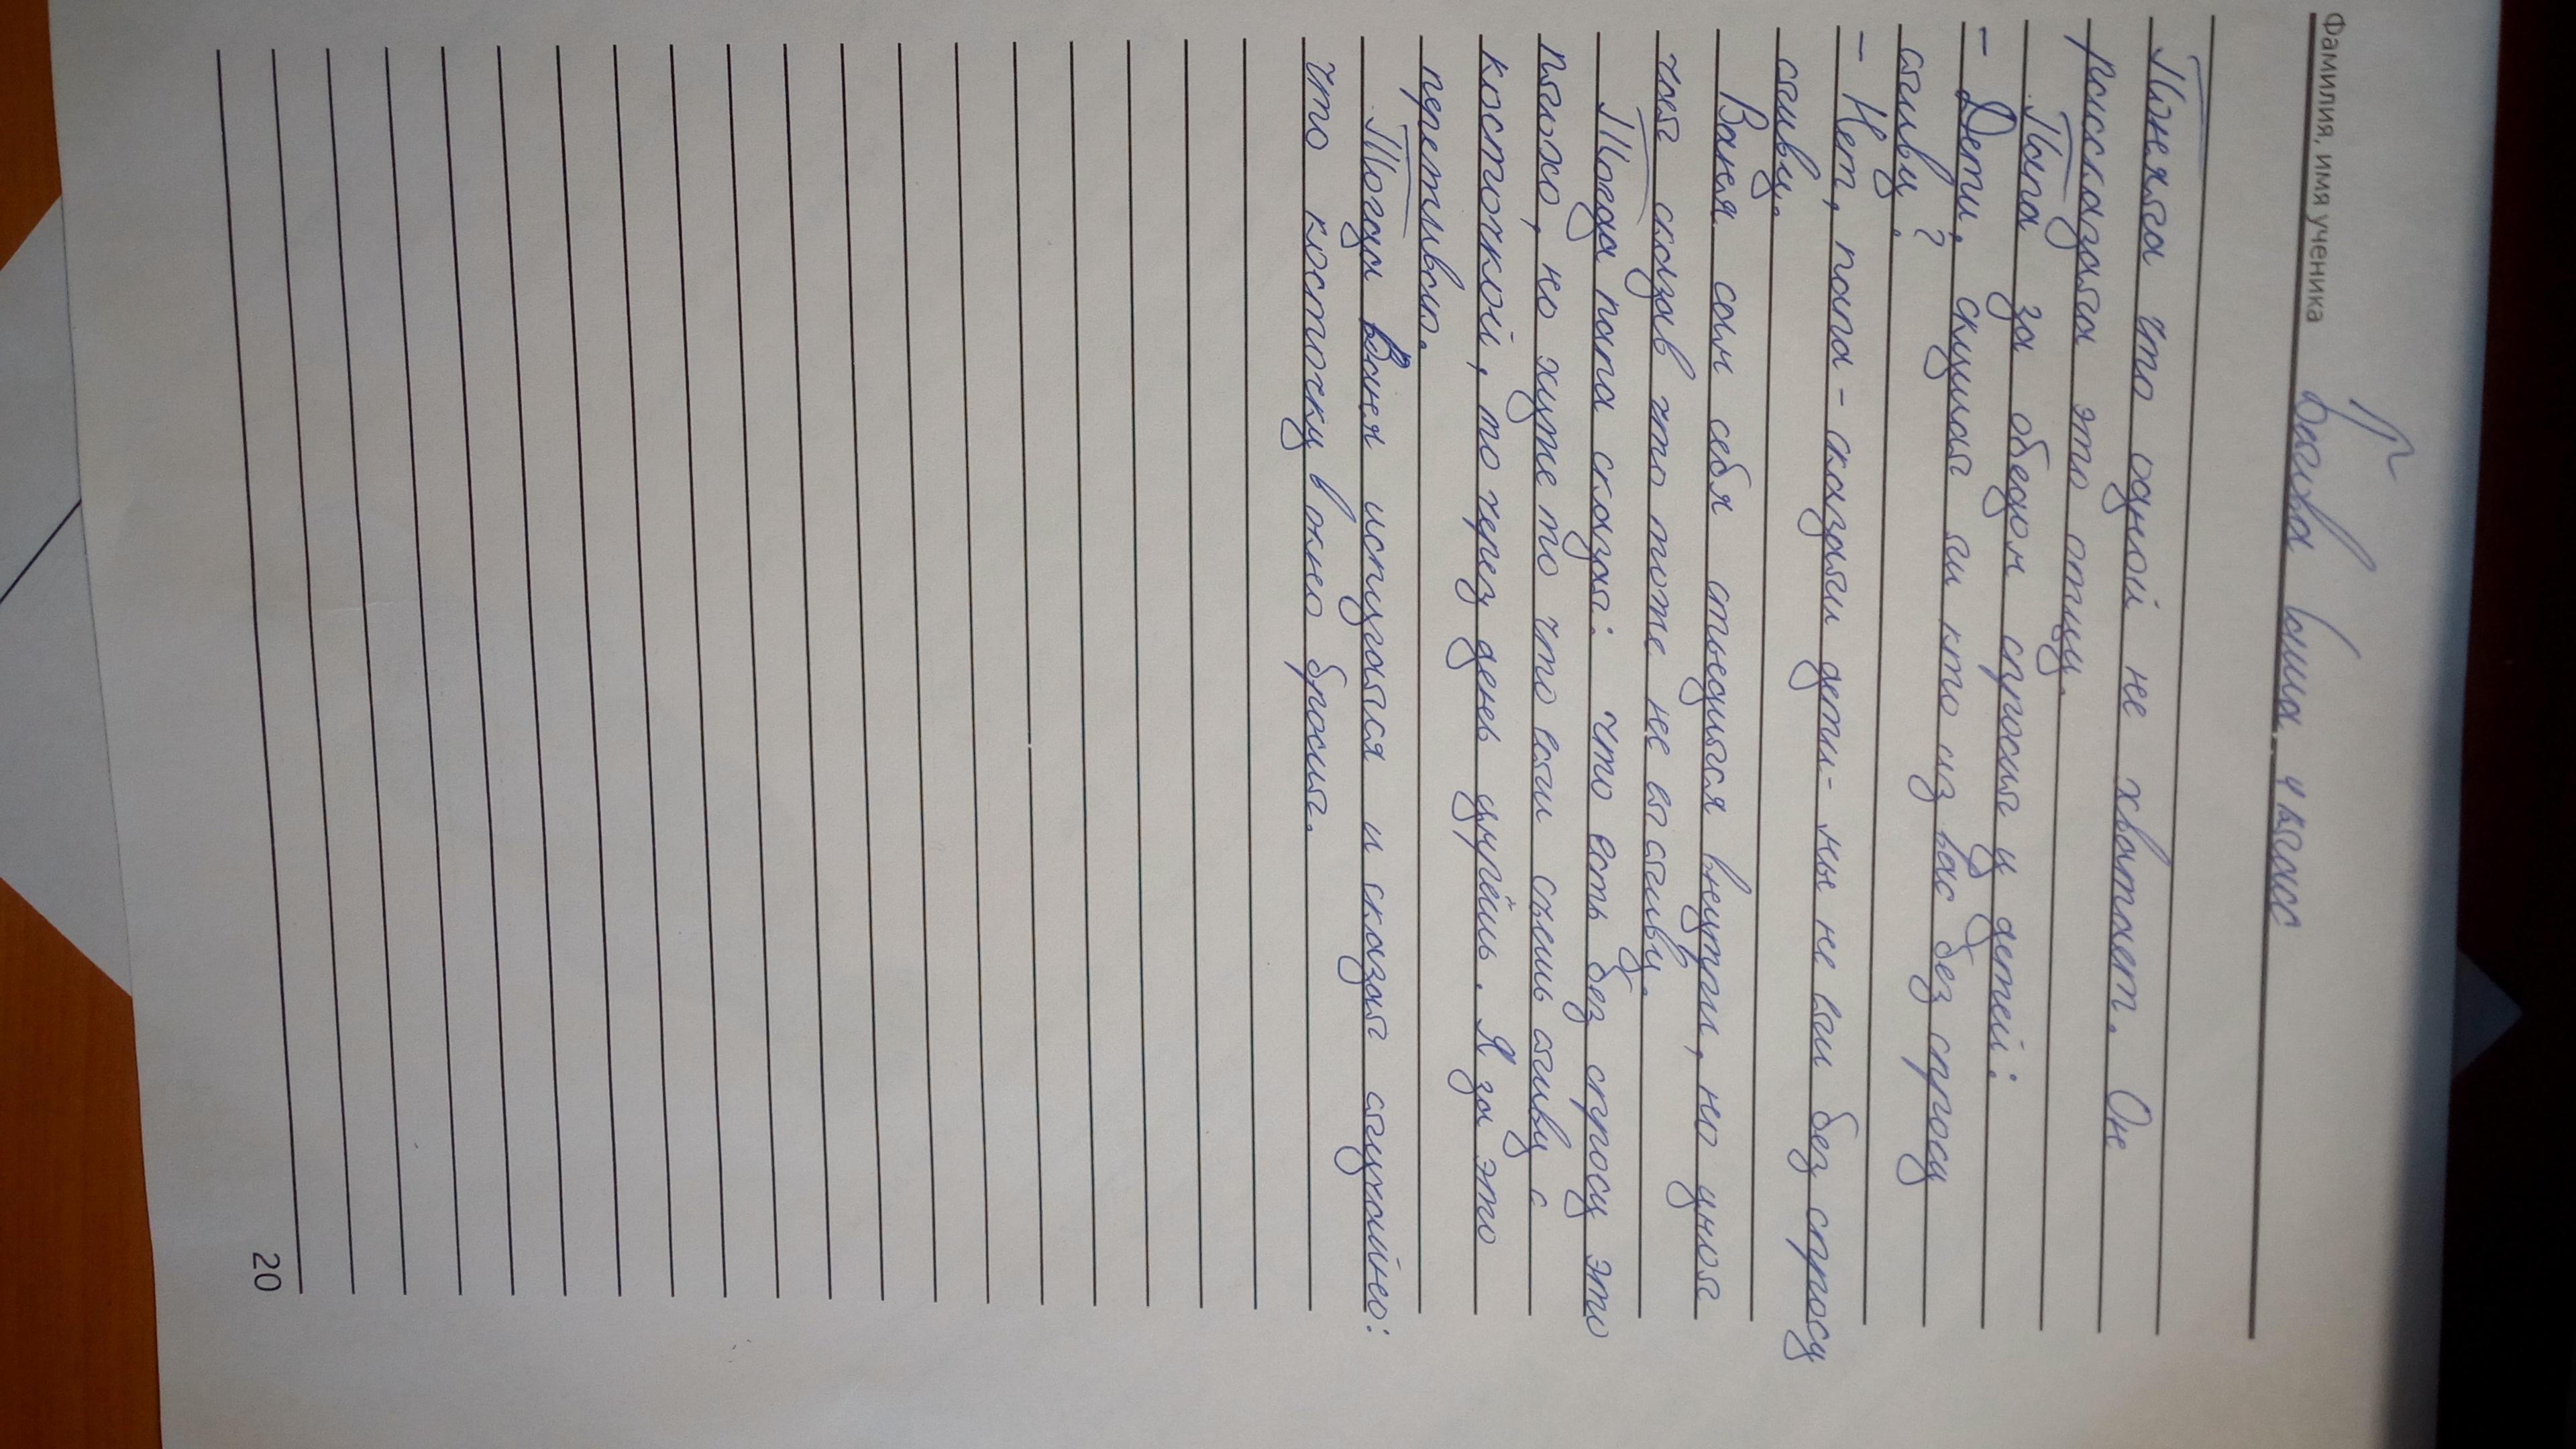 Фамилия, имя ученика
4 класс
Поняла что одной не хватает. Он
рассказала это отцу.
Папа за обедом спросил у детей:
– Дети, скушал ли кто из вас без спросу
сливу?
– Нет, папа – сказали дети – мы не ели без спросу
сливу.
Ваня сам себя стыдился внутри, но умол
чал сказав что тоже не ел сливу.
Тогда папа сказал: что есть без спросу это
плохо, но хуже то что если съешь сливу с
косточкой, то через день умрёшь. Я за это
переживаю.
Тогда Ваня испугался и сказал случайно:
что косточку в окно бросил.
20